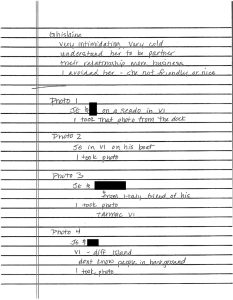 Ghislaine
very intimidating, very cold
understand her to be partner
their relationship more business
I avoided her - she not friendly or nice
Photo 1
JE & on a Seadoo in VI
I took that photo from the dock
Photo 2
JE in VI on his boat
I took photo
Photo 3
JE &
from Italy friend of his
I took photo
Tarmac VI
Photo 4
JE &
VI - diff Island
dont know people in background
I took photo